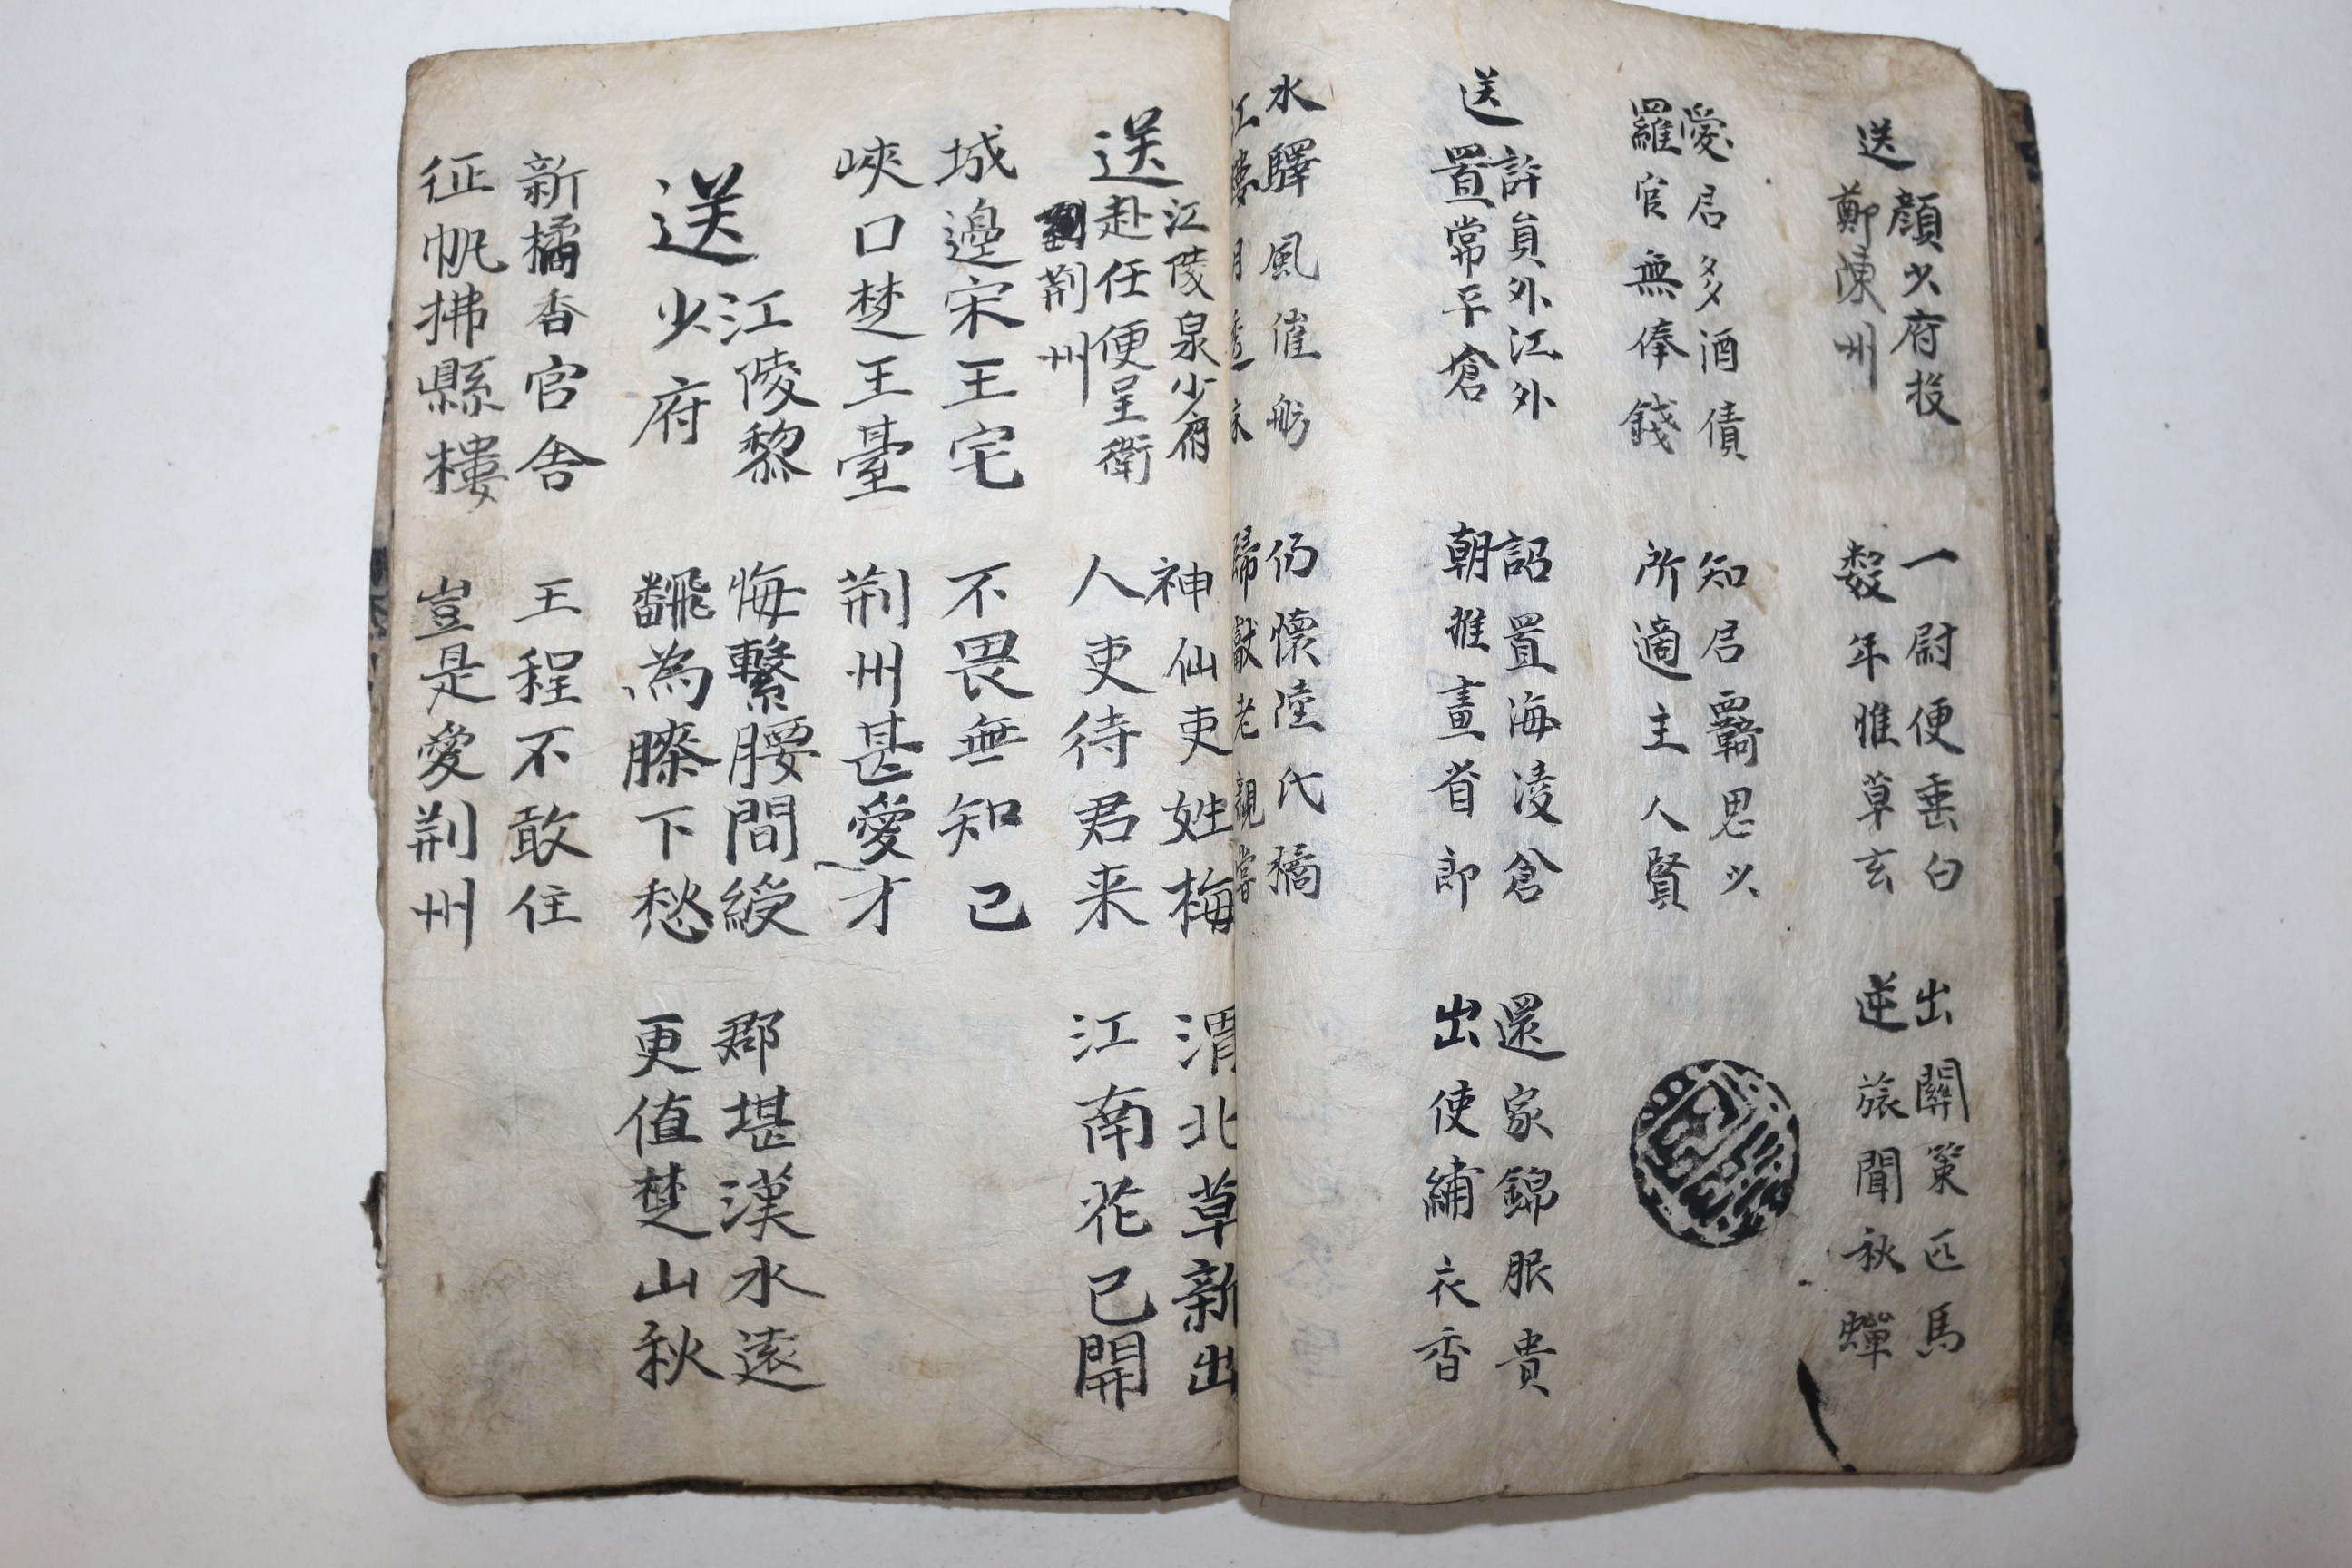 送顔少府投
鄭陳州
一尉便垂白
數年惟草玄
出關策匹馬
逆旅聞秋蟬
愛君多酒債
羅官無俸錢
知君覊思以
所適主人賢
送許員外江外
置常平倉
詔置海凌倉
朝推畫省郎
還家錦服貴
出使繡衣香
水驛風催舫
江樓月透床
仍懷陸氏橘
歸獻老親嘗
送江陵泉少府
赴任便呈衛
荆州
神仙吏姓梅
人吏待君来
渭北草新出
江南花已開
城邊宋王宅
峽口楚王臺
不畏無知己
荆州甚愛才
送江陵黎
少府
悔繫腰間綬
飜為膝下愁
郡堪漢水遠
更值楚山秋
新橘香官舎
征帆拂縣樓
王程不敢住
豈是愛荆州